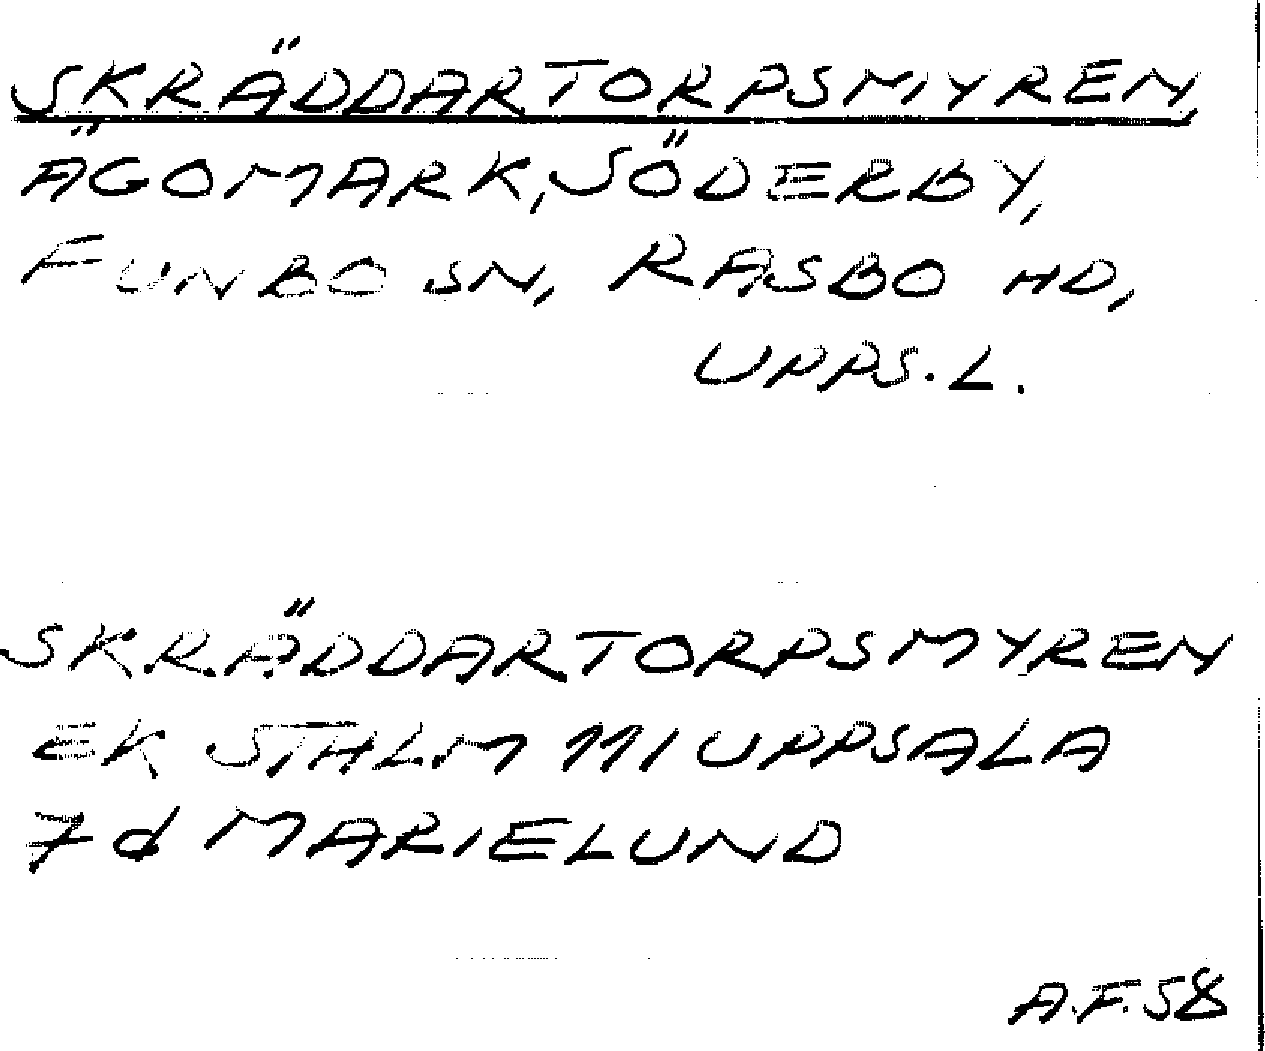 SKRÄDDARTORPSMYREN,
ÄGOMARK, SÖDERBY,
FUNBO SN, RASBO HD,
UPPS. L.
SKRÄDDARTORPSMYREN
EK STHLM 111 UPPSALA
7d MARIELUND
A.F. 58